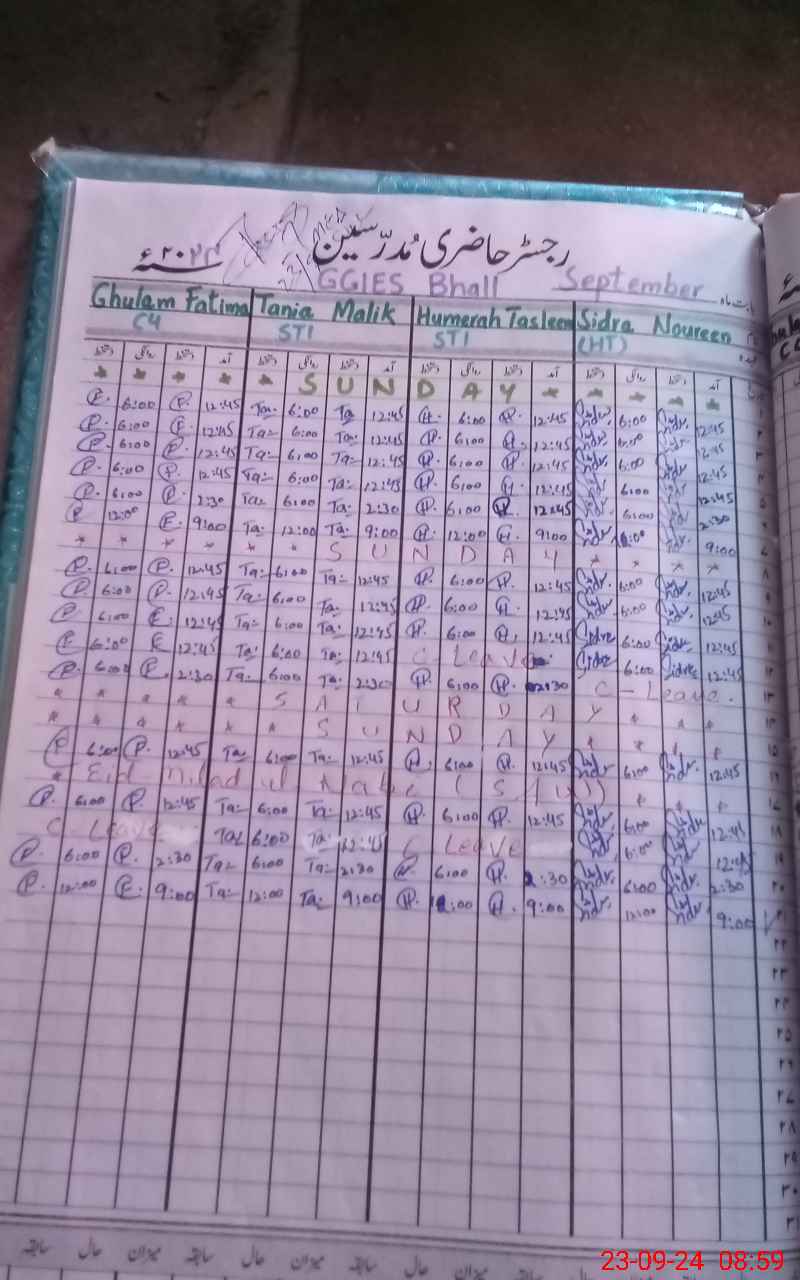 رجسٹر حاضری مُدرّسین ۲۰۲۴ء
GGIES Bhall September بابت ماہ
Ghulam Fatima Tania Malik Humerah Tasleem Sidra Noureen
C4 STI STI (HT)
* * * * * S U N D A Y * * * * *
P. 6:00 P. 12:45 Ta= 6:00 Ta 12:45 H. 6:00 H. 12:45 Sidr. 6:00 Sidr. 12:45
P. 6:00 P. 12:45 Ta= 6:00 Ta= 12:45 H. 6:00 H. 12:45 Sidr. 6:00 Sidr. 12:45
P. 6:00 P. 12:45 Ta= 6:00 Ta= 12:45 H. 6:00 H. 12:45 Sidr. 6:00 Sidr. 12:45
P. 6:00 P. 12:45 Ta= 6:00 Ta= 12:45 H. 6:00 H. 12:45 Sidr. 6:00 Sidr. 12:45
P. 6:00 P. 2:30 Ta= 6:00 Ta= 2:30 H. 6:00 H. 12:45 Sidr. 6:00 Sidr. 2:30
P. 12:00 P. 9:00 Ta= 12:00 Ta= 9:00 H. 12:00 H. 9:00 Sidr. Sidr. 9:00
* * * * * * S U N D A Y * * * *
P. 6:00 P. 12:45 Ta= 6:00 Ta= 12:45 H. 6:00 H. 12:45 Sidr. 6:00 Sidr. 12:45
P. 6:00 P. 12:45 Ta= 6:00 Ta= 12:45 H. 6:00 H. 12:45 Sidr. 6:00 Sidr. 12:45
P. 6:00 P. 12:45 Ta= 6:00 Ta= 12:45 H. 6:00 H. 12:45 Sidre 6:00 Sidre 12:45
P. 6:00 P. 12:45 Ta= 6:00 Ta= 12:45 C-Leave Sidre 6:00 Sidre 12:45
P. 6:00 P. 2:30 Ta= 6:00 Ta= 2:30 H. 6:00 H. 2:30 C-Leave.
* * * * * S A T U R D A Y * * *
* * * * * * S U N D A Y * * * *
P. 6:00 P. 12:45 Ta= 6:00 Ta= 12:45 H. 6:00 H. 12:45 Sidr. 6:00 Sidr. 12:45
* Eid Milad ul Nabi (S.A.W) * *
P. 6:00 P. 12:45 Ta= 6:00 Ta= 12:45 H. 6:00 H. 12:45 Sidr. 6:00 Sidr. 12:45
C-Leave Ta= 6:00 Ta= 12:45 C Leave Sidr. 6:00 Sidr. 12:45
P. 6:00 P. 2:30 Ta= 6:00 Ta= 2:30 H. 6:00 H. 2:30 Sidr. 6:00 Sidr. 2:30
P. 12:00 P. 9:00 Ta= 12:00 Ta= 9:00 H. 12:00 H. 9:00 Sidr. 12:00 Sidr. 9:00
۲۲
۲۳
۲۴
۲۵
۲۶
۲۷
۲۸
۲۹
۳۰
۳۱
سابقہ حال میزان سابقہ حال میزان سابقہ حال میزان
23-09-24 08:59